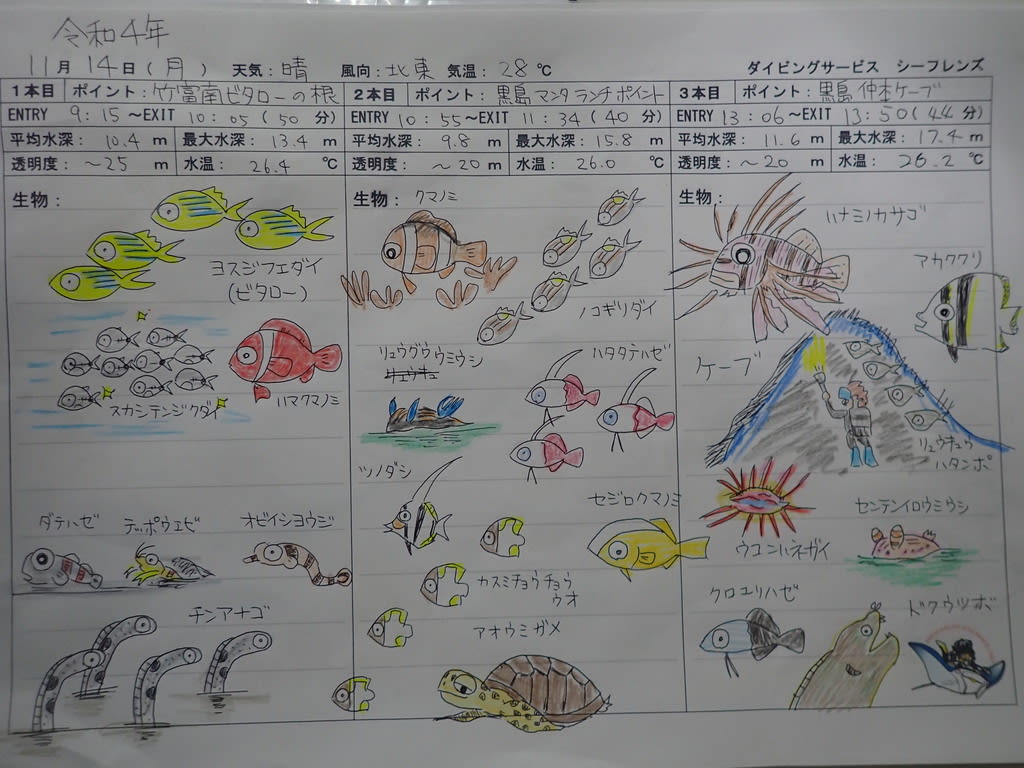 令和4年
11月 14日(月) 天気:晴 風向:北東 気温:28℃ ダイビングサービス シーフレンズ
1本目 ポイント:竹富南ビタローの根
ENTRY 9:15~EXIT 10:05(50分)
平均水深:10.4m 最大水深:13.4m
透明度:~25m 水温:26.4℃
生物:
ヨスジフエダイ
(ビタロー)
スカシテンジクダイ
ハマクマノミ
ダテハゼ
テッポウエビ
オビイシヨウジ
チンアナゴ
2本目 ポイント:黒島マンタランチポイント
ENTRY 10:55~EXIT 11:34(40分)
平均水深:9.8m 最大水深:15.8m
透明度:~20m 水温:26.0℃
生物:
クマノミ
ノコギリダイ
リュウグウウミウシ
ハタタテハゼ
ツノダシ
セジロクマノミ
カスミチョウチョウ
ウオ
アオウミガメ
3本目 ポイント:黒島仲本ケーブ
ENTRY 13:06~EXIT 13:50(44分)
平均水深:11.6m 最大水深:17.4m
透明度:~20m 水温:26.2℃
生物:
ハナミノカサゴ
アカククリ
ケーブ
リュウキュウ
ハタンポ
センテンイロウミウシ
ウコンハネガイ
クロユリハゼ
ドクウツボ